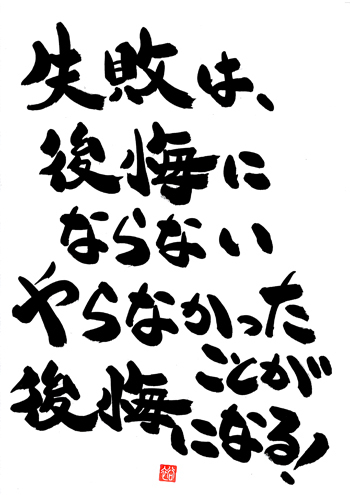 失敗は、
後悔に
ならない
やらなかった
ことが
後悔になる!